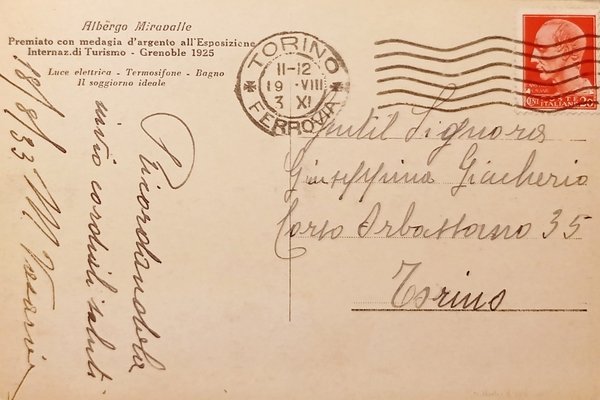 Albergo Miravalle
Premiato con medagia d'argento all'Esposizione
Internaz. di Turismo - Grenoble 1925
Luce elettrica - Termosifone - Bagno
Il soggiorno ideale
18/8/33 M
Ricordandola
invio cordiali saluti
TORINO
11-12
19 ·VIII
3 XI
FERROVIA
ITALIANE
20
Gentil Signora
Giuseppina Giacheria
Corso Orbassano 35
Torino